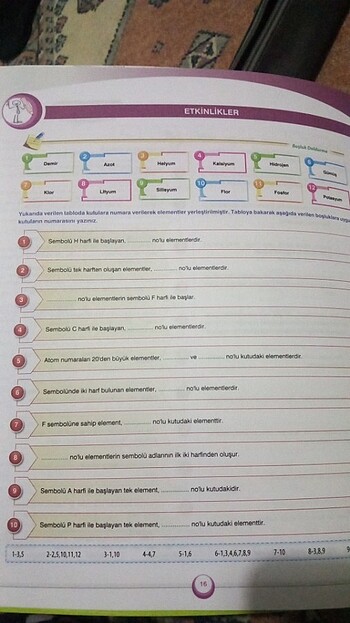 ETKİNLİKLER
Boşluk Doldurma
1 Demir
2 Azot
3 Helyum
4 Kalsiyum
5 Hidrojen
6 Gümüş
7 Klor
8 Lityum
9 Silisyum
10 Flor
11 Fosfor
12 Potasyum
Yukarıda verilen tabloda kutulara numara verilerek elementler yerleştirilmiştir. Tabloya bakarak aşağıda verilen boşluklara uygun
kutuların numarasını yazınız.
1 Sembolü H harfi ile başlayan, ............ no'lu elementlerdir.
2 Sembolü tek harften oluşan elementler, ............ no'lu elementlerdir.
3 ............ no'lu elementlerin sembolü F harfi ile başlar.
4 Sembolü C harfi ile başlayan, ............ no'lu elementlerdir.
5 Atom numaraları 20'den büyük elementler, ............ ve ............ no'lu kutudaki elementlerdir.
6 Sembolünde iki harf bulunan elementler, ............ no'lu elementlerdir.
7 F sembolüne sahip element, ............ no'lu kutudaki elementtir.
8 ............ no'lu elementlerin sembolü adlarının ilk iki harfinden oluşur.
9 Sembolü A harfi ile başlayan tek element, ............ no'lu kutudakidir.
10 Sembolü P harfi ile başlayan tek element, ............ no'lu kutudaki elementtir.
1-3,5 2-2,5,10,11,12 3-1,10 4-4,7 5-1,6 6-1,3,4,6,7,8,9 7-10 8-3,8,9 9
16